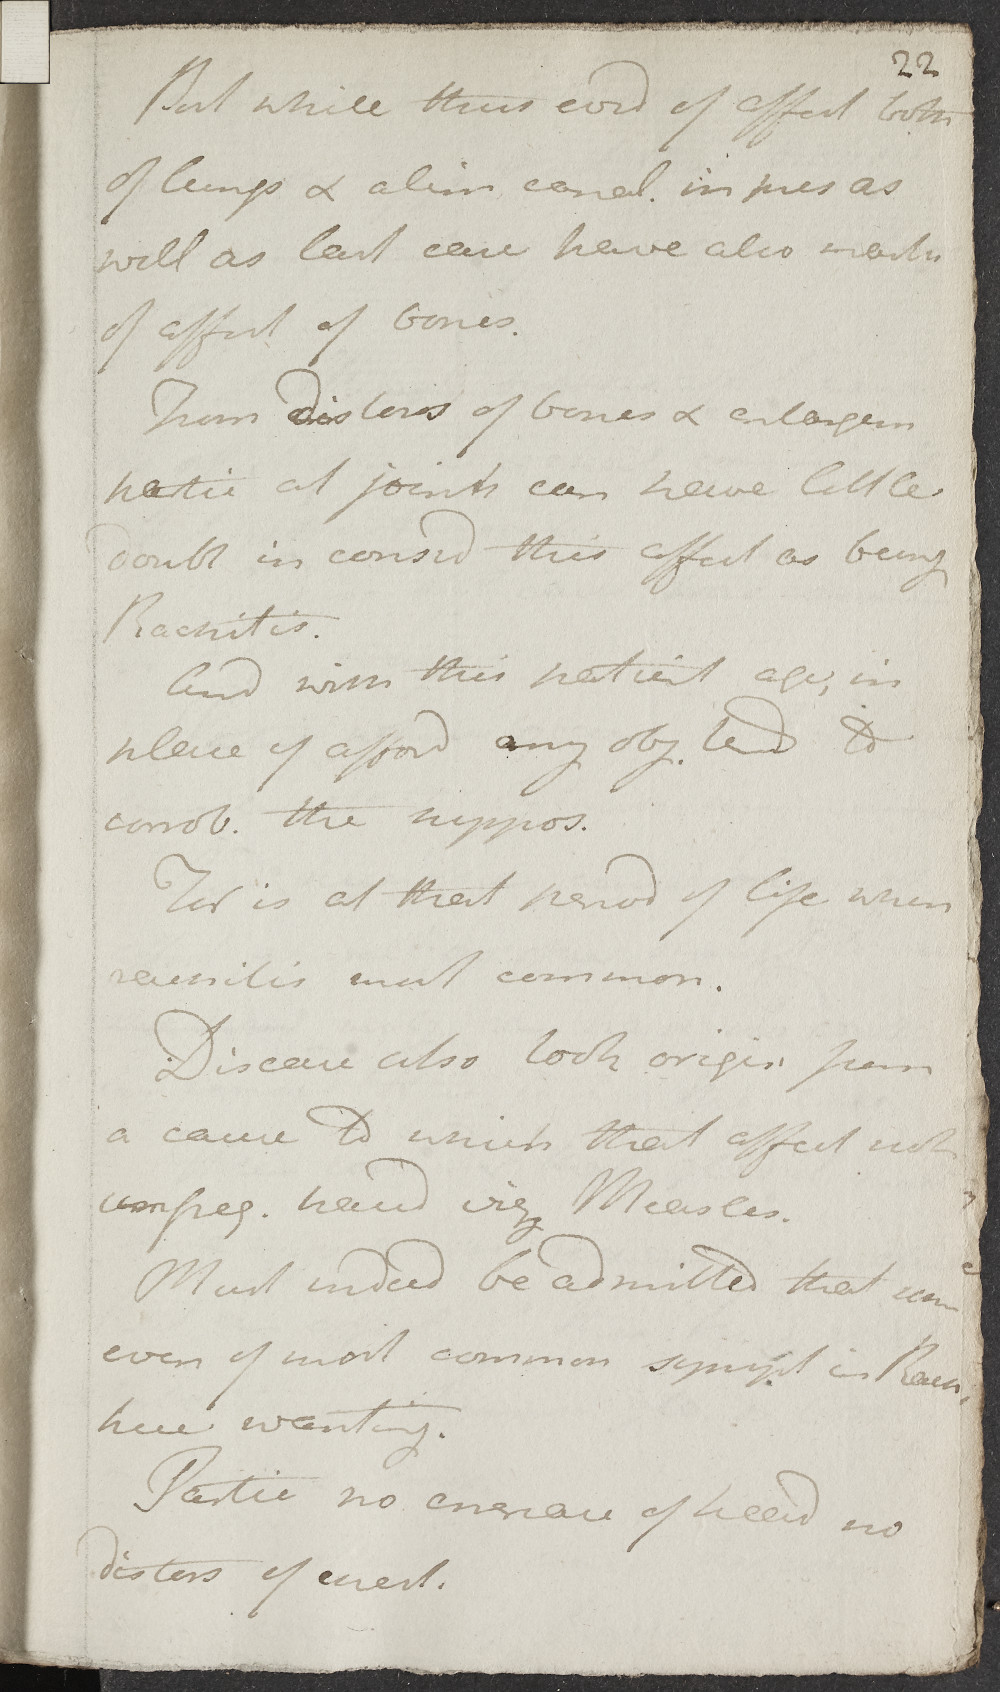 22
But while thus evid of affect both
of lungs & alim canal. in pres as
well as last case have also marks
of affect of bones.
From distors of bones & enlargem
partic at joints can have little
doubt in consid this affect as being
Rachitis.
And with this patient age, in
place of afford any obj. tend to
corrob. the suppos.
For is at that period of life when
rachitis most common.
Disease also took origin from
a cause to which that affect not
unfreq. had viz Measles.
Must indeed be admitted that som
even of most common sympt in Rach.
here wanting.
Partic no increase of head no
distors of chest.